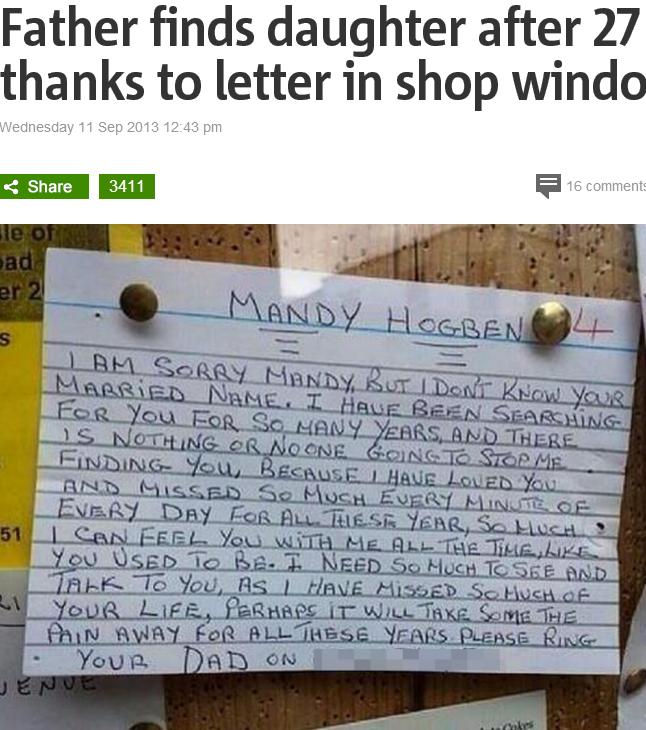 Father finds daughter after 27
thanks to letter in shop windo
Wednesday 11 Sep 2013 12:43 pm
Share
3411
16 comments
MANDY HOGBEN 4
I AM SORRY MANDY, BUT I DON'T KNOW YOUR
MARRIED NAME. I HAVE BEEN SEARCHING
FOR YOU FOR SO MANY YEARS, AND THERE
IS NOTHING OR NO ONE GOING TO STOP ME
FINDING YOU, BECAUSE I HAVE LOVED YOU
AND MISSED SO MUCH EVERY MINUTE OF
EVERY DAY FOR ALL THESE YEAR, SO MUCH
I CAN FEEL YOU WITH ME ALL THE TIME, LIKE
YOU USED TO BE. I NEED SO MUCH TO SEE AND
TALK TO YOU, AS I HAVE MISSED SO MUCH OF
YOUR LIFE, PERHAPS IT WILL TAKE SOME THE
PAIN AWAY FOR ALL THESE YEARS. PLEASE RING
YOUR DAD ON
51